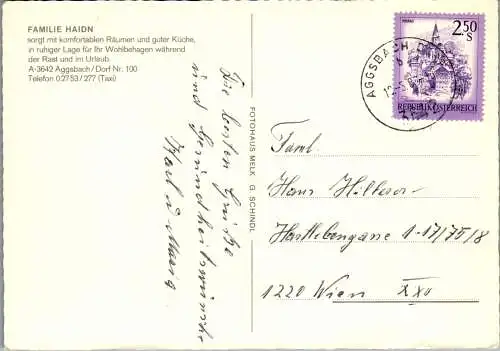 FAMILIE HAIDN
sorgt mit komfortablen Räumen und guter Küche,
in ruhiger Lage für Ihr Wohlbehagen während
der Rast und im Urlaub.
A-3642 Aggsbach / Dorf Nr. 100
Telefon 0 27 53 / 277 (Taxi)
Die besten Grüße
und Gesundheitswünsche
Karl u Maria
FOTOHAUS MELK G. SCHINDL
2.50
S
REPUBLIK ÖSTERREICH
AGGSBACH
3642
Faml.
Hans
Hartlebengasse 1-17/75/8
1220 Wien XXII